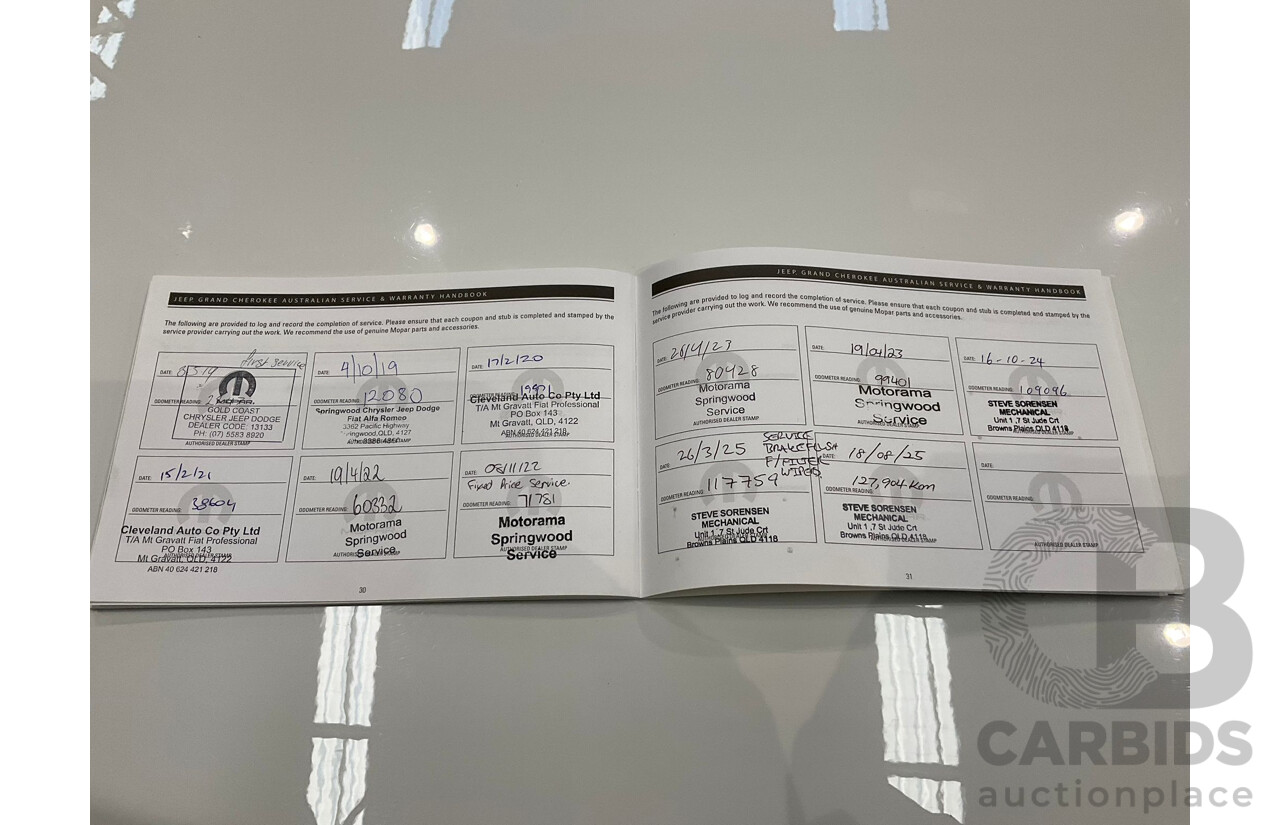 JEEP. GRAND CHEROKEE AUSTRALIAN SERVICE & WARRANTY HANDBOOK
The following are provided to log and record the completion of service. Please ensure that each coupon and stub is completed and stamped by the
service provider carrying out the work. We recommend the use of genuine Mopar parts and accessories.
first service
DATE:
ODOMETER READING:
MOPAR
GOLD COAST
CHRYSLER JEEP DODGE
DEALER CODE: 13133
PH: (07) 5583 8920
AUTHORISED DEALER STAMP
DATE: 4/10/19
ODOMETER READING: 12080
Springwood Chrysler Jeep Dodge
Fiat Alfa Romeo
3362 Pacific Highway
Springwood, QLD, 4127
AUTHORISED DEALER STAMP
DATE: 17/2/20
ODOMETER READING:
Cleveland Auto Co Pty Ltd
T/A Mt Gravatt Fiat Professional
PO Box 143
Mt Gravatt, QLD, 4122
AUTHORISED DEALER STAMP
ABN 40 624 421 218
DATE: 15/2/21
ODOMETER READING: 38604
Cleveland Auto Co Pty Ltd
T/A Mt Gravatt Fiat Professional
PO Box 143
AUTHORISED DEALER STAMP
Mt Gravatt, QLD, 4122
ABN 40 624 421 218
DATE: 19/4/22
ODOMETER READING: 60332
Motorama
Springwood
Service
AUTHORISED DEALER STAMP
DATE: 08/11/22
Fixed Price Service.
ODOMETER READING: 71781
Motorama
Springwood
AUTHORISED DEALER STAMP
Service
30
JEEP. GRAND CHEROKEE AUSTRALIAN SERVICE & WARRANTY HANDBOOK
The following are provided to log and record the completion of service. Please ensure that each coupon and stub is completed and stamped by the
service provider carrying out the work. We recommend the use of genuine Mopar parts and accessories.
DATE: 26/4/23
ODOMETER READING: 80428
Motorama
Springwood
Service
AUTHORISED DEALER STAMP
DATE: 19/04/23
ODOMETER READING: 99401
Motorama
Springwood
Service
AUTHORISED DEALER STAMP
DATE: 16-10-24
ODOMETER READING: 109096
STEVE SORENSEN
MECHANICAL
Unit 1 ,7 St Jude Crt
Browns Plains QLD 4118
AUTHORISED DEALER STAMP
DATE: 26/3/25
SERVICE
BRAKE FLUSH
F/FILTER
WIPER
ODOMETER READING: 117759
STEVE SORENSEN
MECHANICAL
Unit 1 ,7 St Jude Crt
Browns Plains QLD 4118
AUTHORISED DEALER STAMP
DATE: 18/08/25
ODOMETER READING: 127,904km
STEVE SORENSEN
MECHANICAL
Unit 1 ,7 St Jude Crt
Browns Plains QLD 4118
AUTHORISED DEALER STAMP
DATE:
ODOMETER READING:
AUTHORISED DEALER STAMP
31
CARBIDS
auctionplace